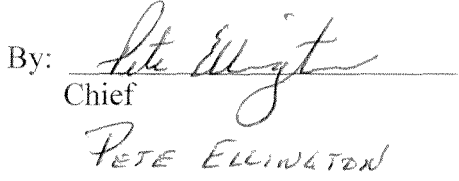 By: Pete Ellington
Chief
PETE ELLINGTON